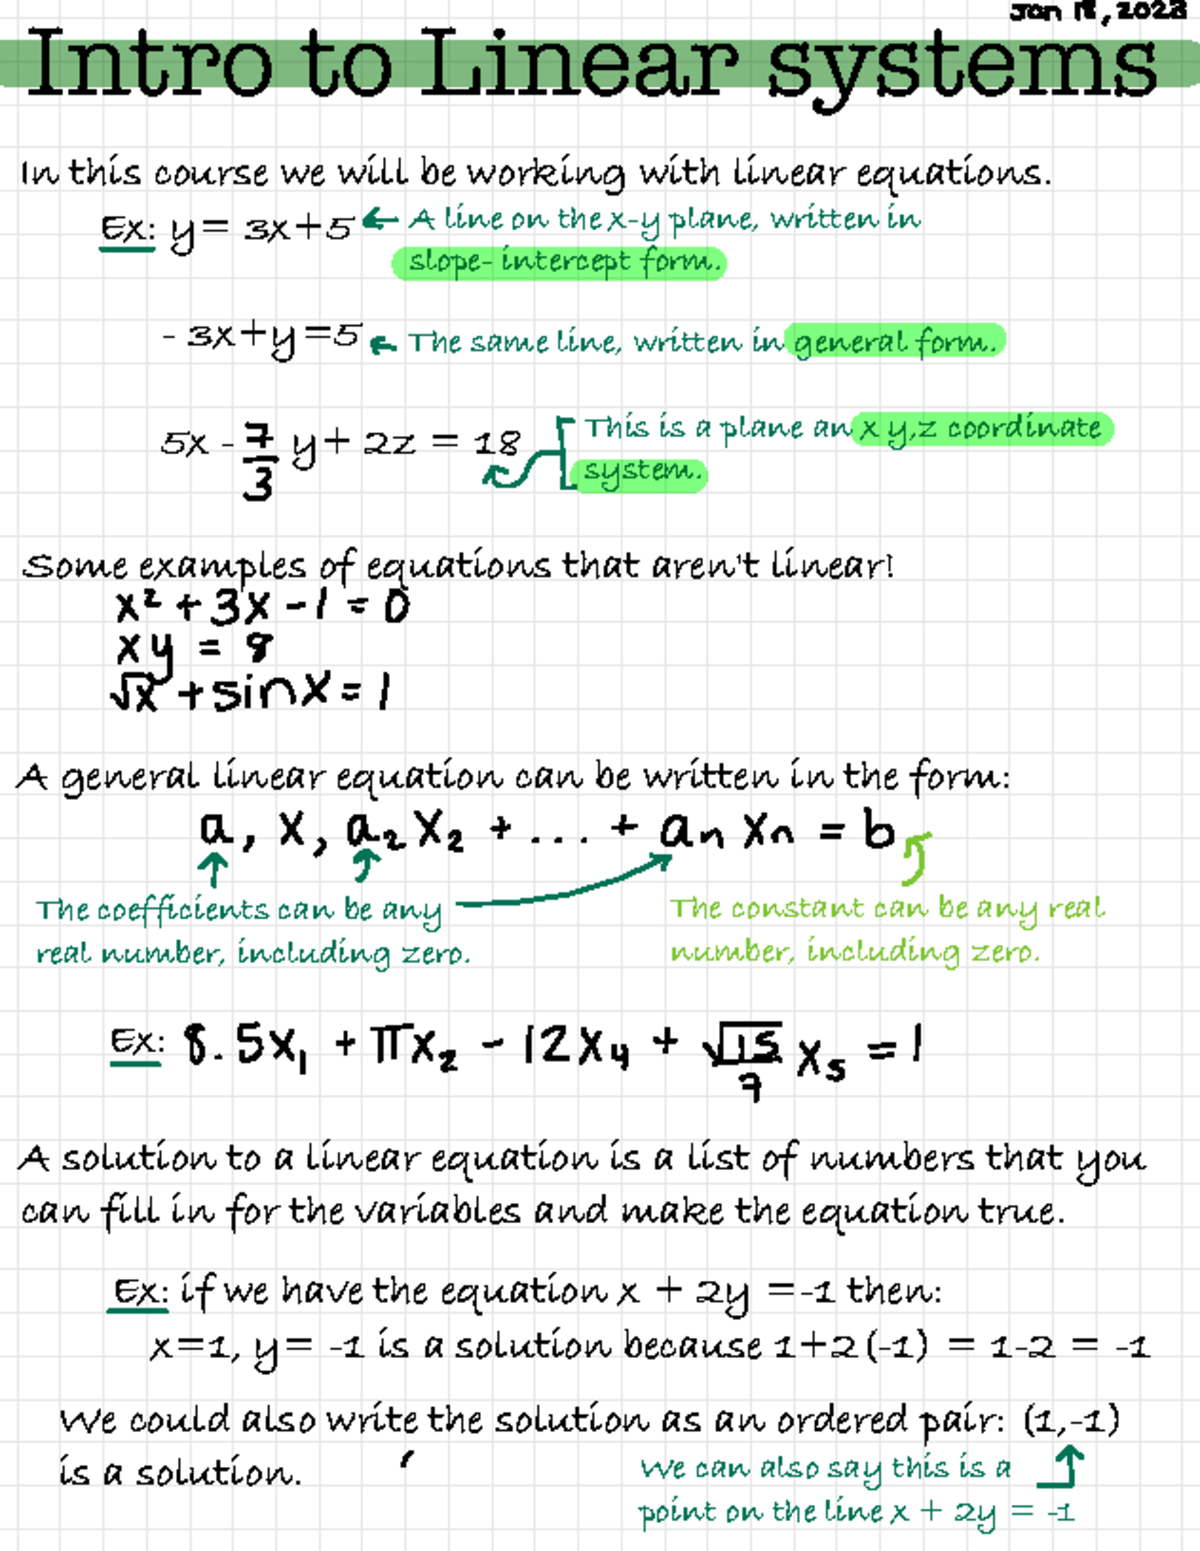 Jan 18, 2023
Intro to Linear systems
In this course we will be working with linear equations.
Ex: y = 3x+5 ← A line on the x-y plane, written in
slope- intercept form.
- 3x+y=5 ← The same line, written in general form.
5x - 7/3 y + 2z = 18 This is a plane an x y,z coordinate
system.
Some examples of equations that aren't linear!
x² + 3x - 1 = 0
xy = 8
√x + sinx = 1
A general linear equation can be written in the form:
a, x, a₂ x₂ + ... + an xn = b
The coefficients can be any
real number, including zero.
The constant can be any real
number, including zero.
Ex: 8.5x₁ + πx₂ - 12x₄ + √15/7 x₅ = 1
A solution to a linear equation is a list of numbers that you
can fill in for the variables and make the equation true.
Ex: if we have the equation x + 2y =-1 then:
x=1, y= -1 is a solution because 1+2(-1) = 1-2 = -1
We could also write the solution as an ordered pair: (1,-1)
is a solution.
We can also say this is a
point on the line x + 2y = -1